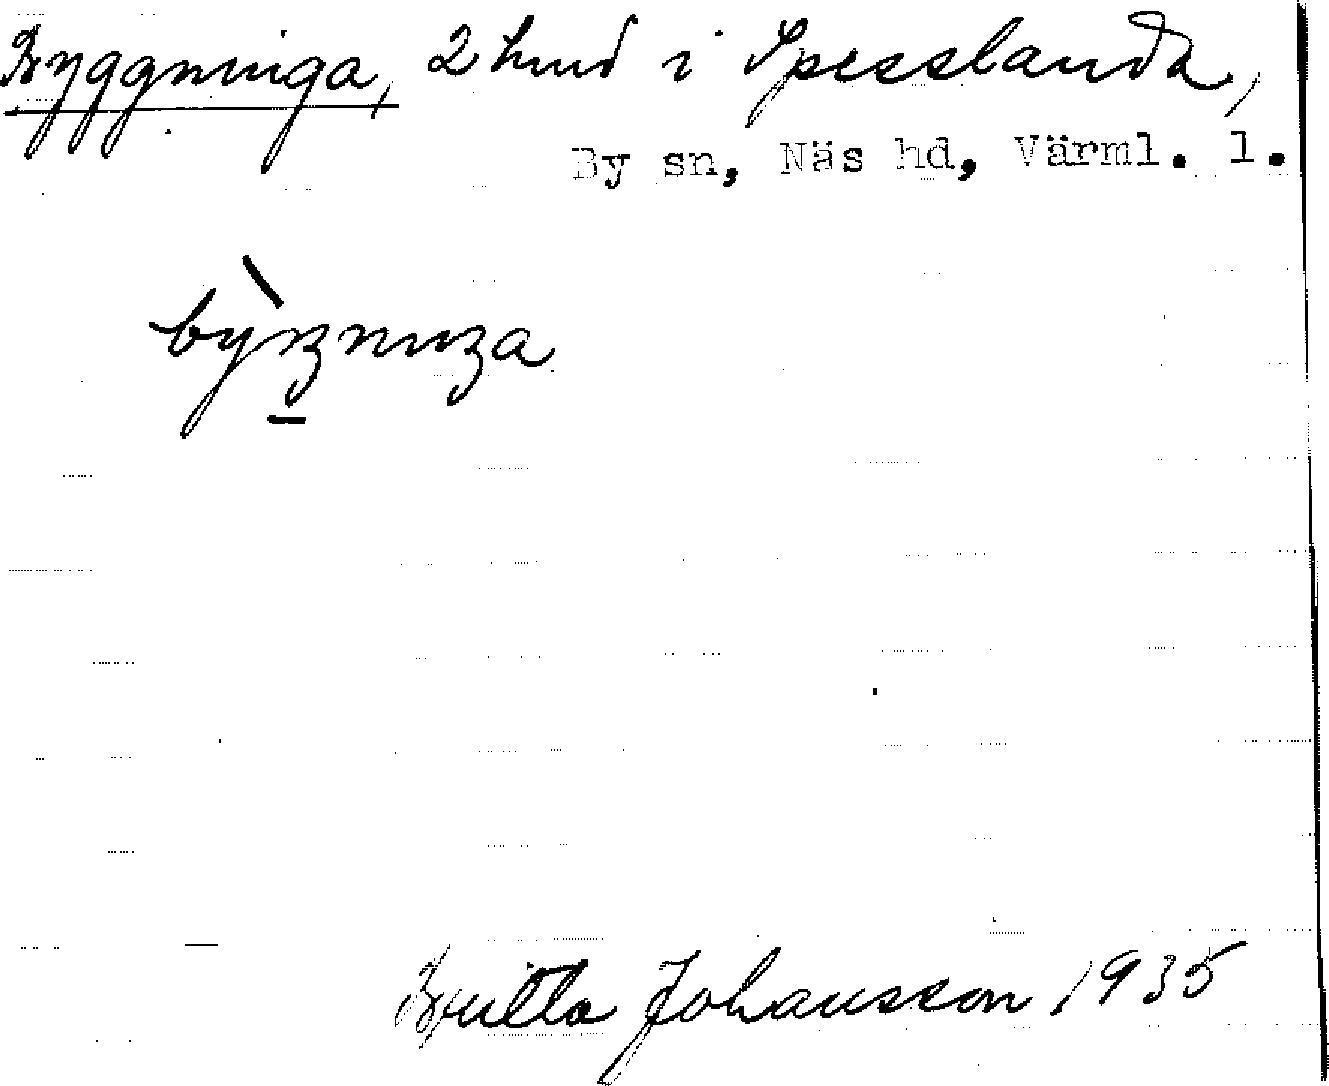 Byggninga, 2 hmd i Spesslanda,
By sn, Näs hd, Värml. l.
Britta Johansson 1935